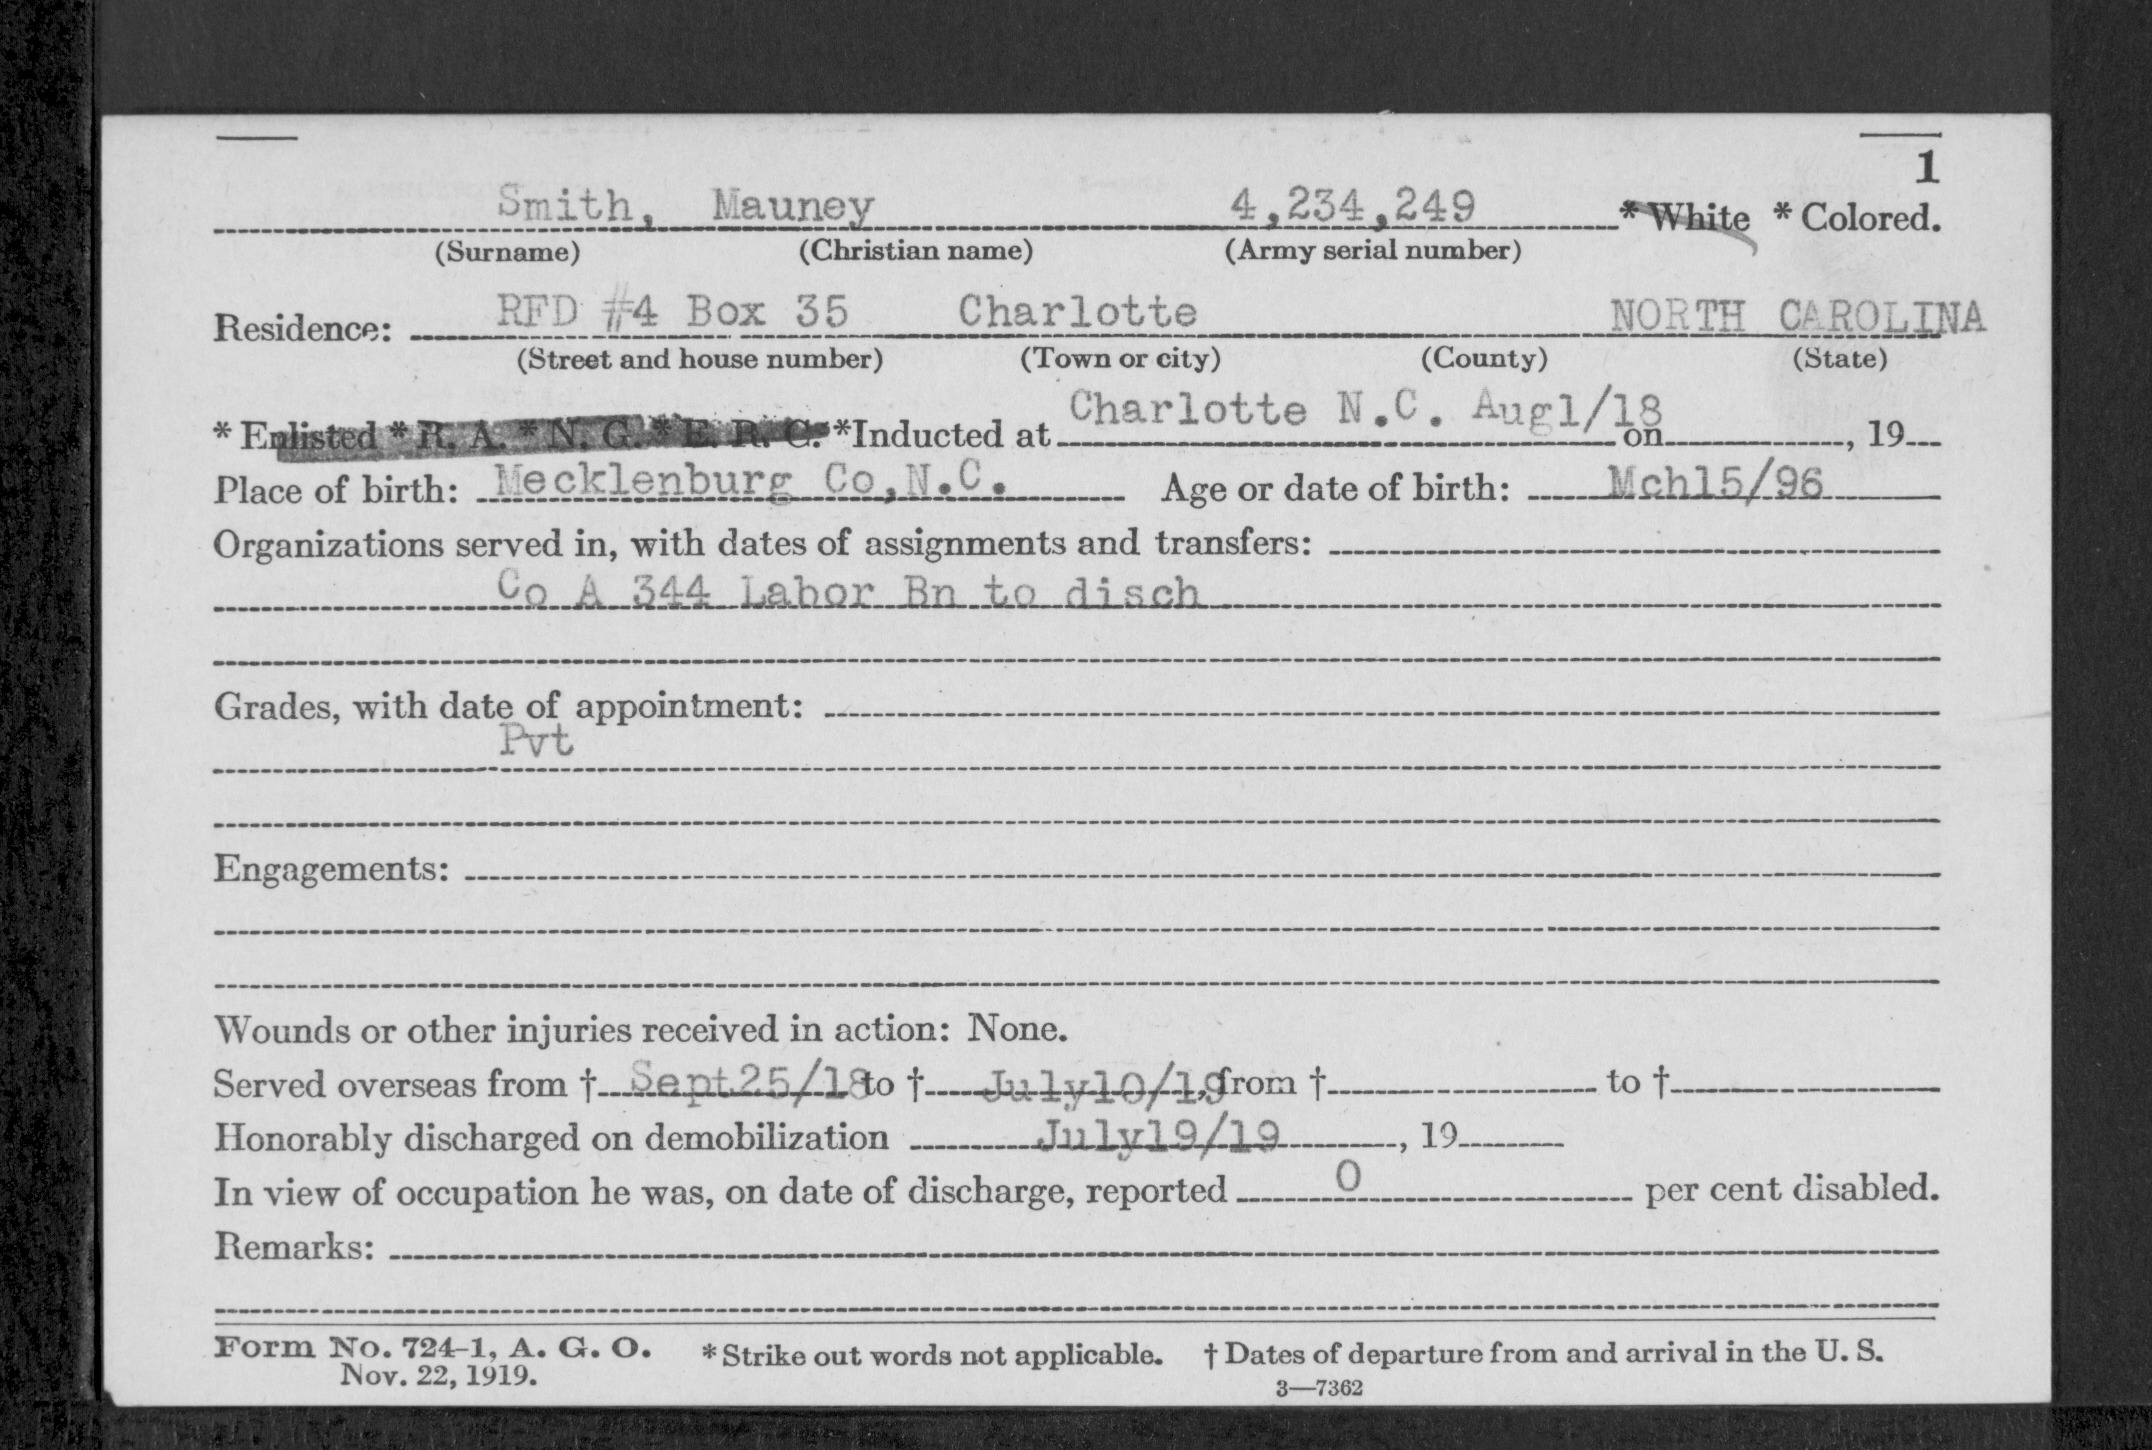 1
Smith, Mauney 4,234,249 * White * Colored.
(Surname) (Christian name) (Army serial number)
Residence: RFD #4 Box 35 Charlotte NORTH CAROLINA
(Street and house number) (Town or city) (County) (State)
* Enlisted * R. A. * N. G. * E. R. C. *Inducted at Charlotte N.C. Aug1/18 on , 19
Place of birth: Mecklenburg Co,N.C. Age or date of birth: Mch15/96
Organizations served in, with dates of assignments and transfers:
Co A 344 Labor Bn to disch
Grades, with date of appointment:
Pvt
Engagements:
Wounds or other injuries received in action: None.
Served overseas from † Sept25/18 to † July10/19, from † to †
Honorably discharged on demobilization July19/19 , 19
In view of occupation he was, on date of discharge, reported 0 per cent disabled.
Remarks:
Form No. 724-1, A. G. O. * Strike out words not applicable. † Dates of departure from and arrival in the U. S.
Nov. 22, 1919. 3—7362